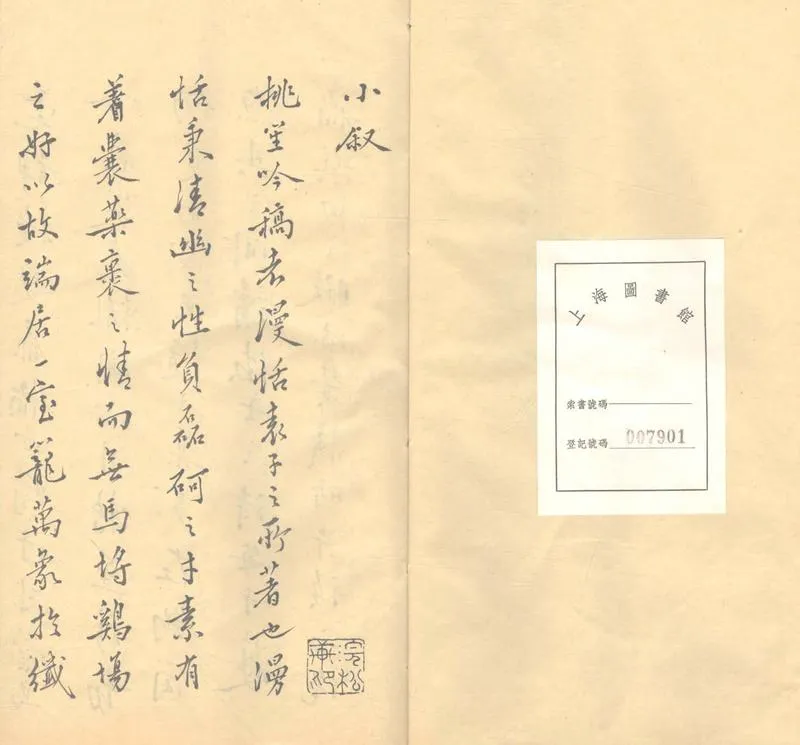 上海圖書館
索書號碼
登記號碼 007901
小叙
桃笙吟稿者漫恬袁子之所著也漫
恬秉清幽之性負磊砢之才素有
着囊薬裹之情而無馬埒鷄場
之好以故端居一室籠萬象於纖